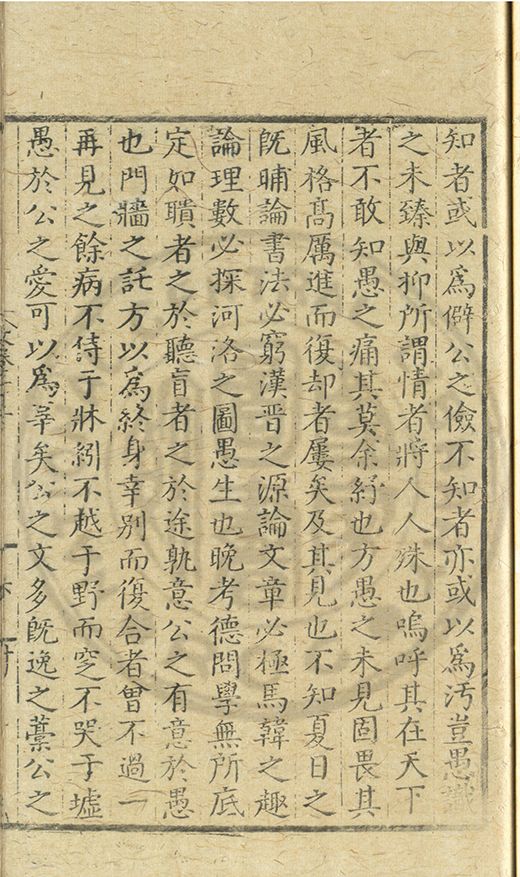 知者或以爲僻公之儉不知者亦或以爲汚豈愚識
之未臻與抑所謂情者將人人殊也嗚呼其在天下
者不敢知愚之痛其莫余紓也方愚之未見固畏其
風格髙厲進而復却者屢矣及其見也不知夏日之
旣晡論書法必窮漢晋之源論文章必極馬韓之趣
論理數必探河洛之圖愚生也晚考德問學無所底
定如聵者之於聽盲者之於途孰意公之有意於愚
也門牆之託方以爲終身幸别而復合者曾不過一
再見之餘病不侍于牀紖不越于野而窆不哭于墟
愚於公之愛可以爲辜矣公之文多旣逸之藁公之